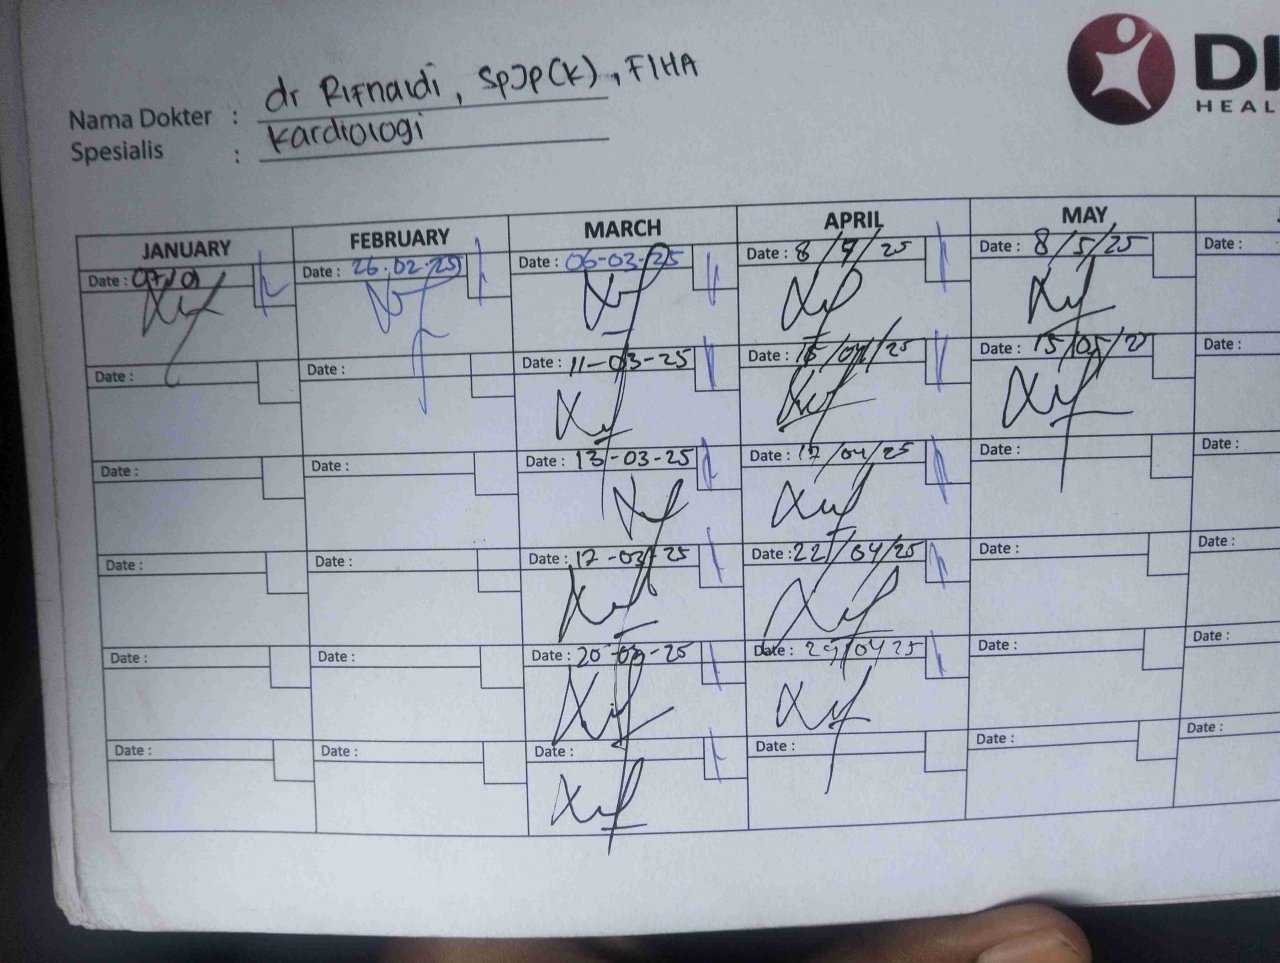 dr Rifnaldi, SpJP(K), FIHA
Nama Dokter :
Kardiologi
Spesialis :
HEAL
JANUARY FEBRUARY MARCH APRIL MAY
Date : 07/01 Date : 26.02.25 Date : 06-03-25 Date : 8/4/25 Date : 8/5/25 Date :
Date : Date : Date : 11-03-25 Date : 15/04/25 Date : 15/05/25 Date :
Date : Date : Date : 13-03-25 Date : 17/04/25 Date : Date :
Date : Date : Date : 17-03-25 Date : 22/04/25 Date : Date :
Date : Date : Date : 20-03-25 Date : 29/04 25 Date : Date :
Date : Date : Date : Date : Date : Date :